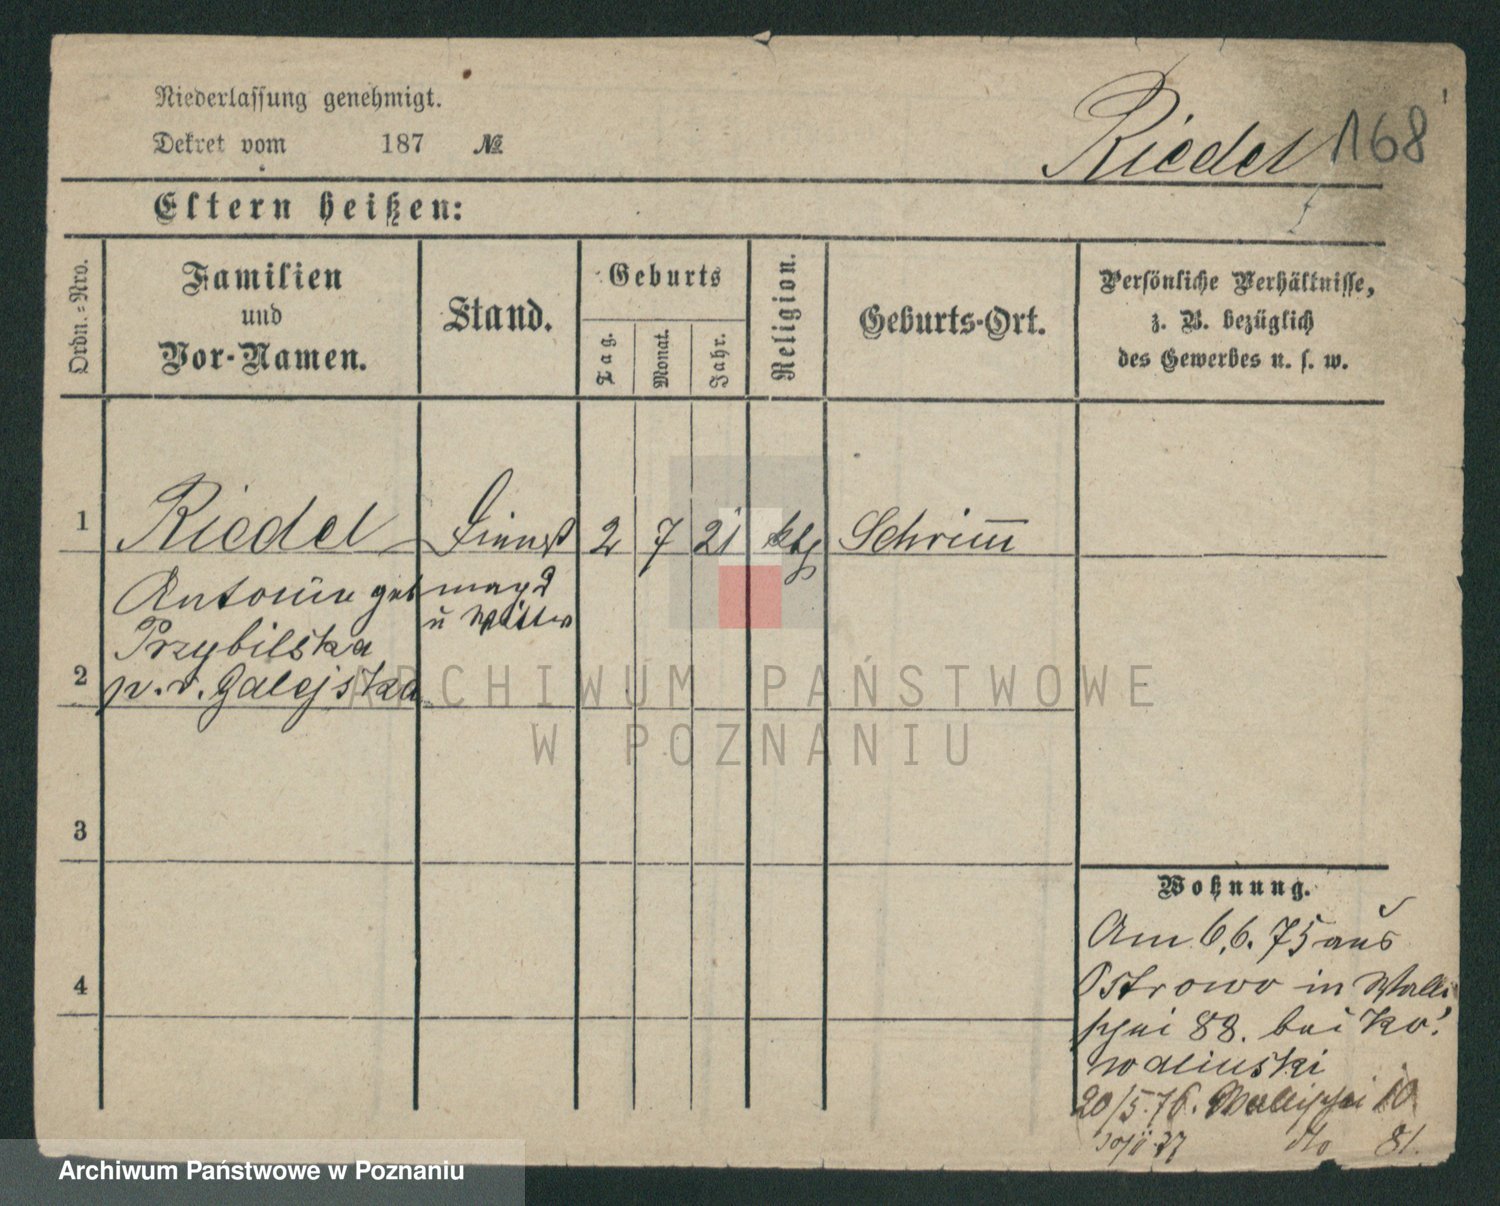 Niederlassung genehmigt.
Dekret vom 187 №
Riedel 168
Eltern heißen:
Ordn.-Nro.
Familien
und
Vor-Namen.
Stand.
Geburts
Tag.
Monat.
Jahr.
Religion.
Geburts-Ort.
Persönliche Verhältnisse,
z. B. bezüglich
des Gewerbes u. s. w.
1 Riedel Dienst 2 7 21 kth Schrimm
Antonie geb magd
u Wittw
Przybilska
2 v. v. Galejska
3
4
Wohnung.
Am 6.6.75 aus
Ostrowo in Walli
schei 88. bei Ko
walinski
20/5.76. Wallischei 10
do 81.
ARCHIWUM PAŃSTWOWE
W POZNANIU
Archiwum Państwowe w Poznaniu